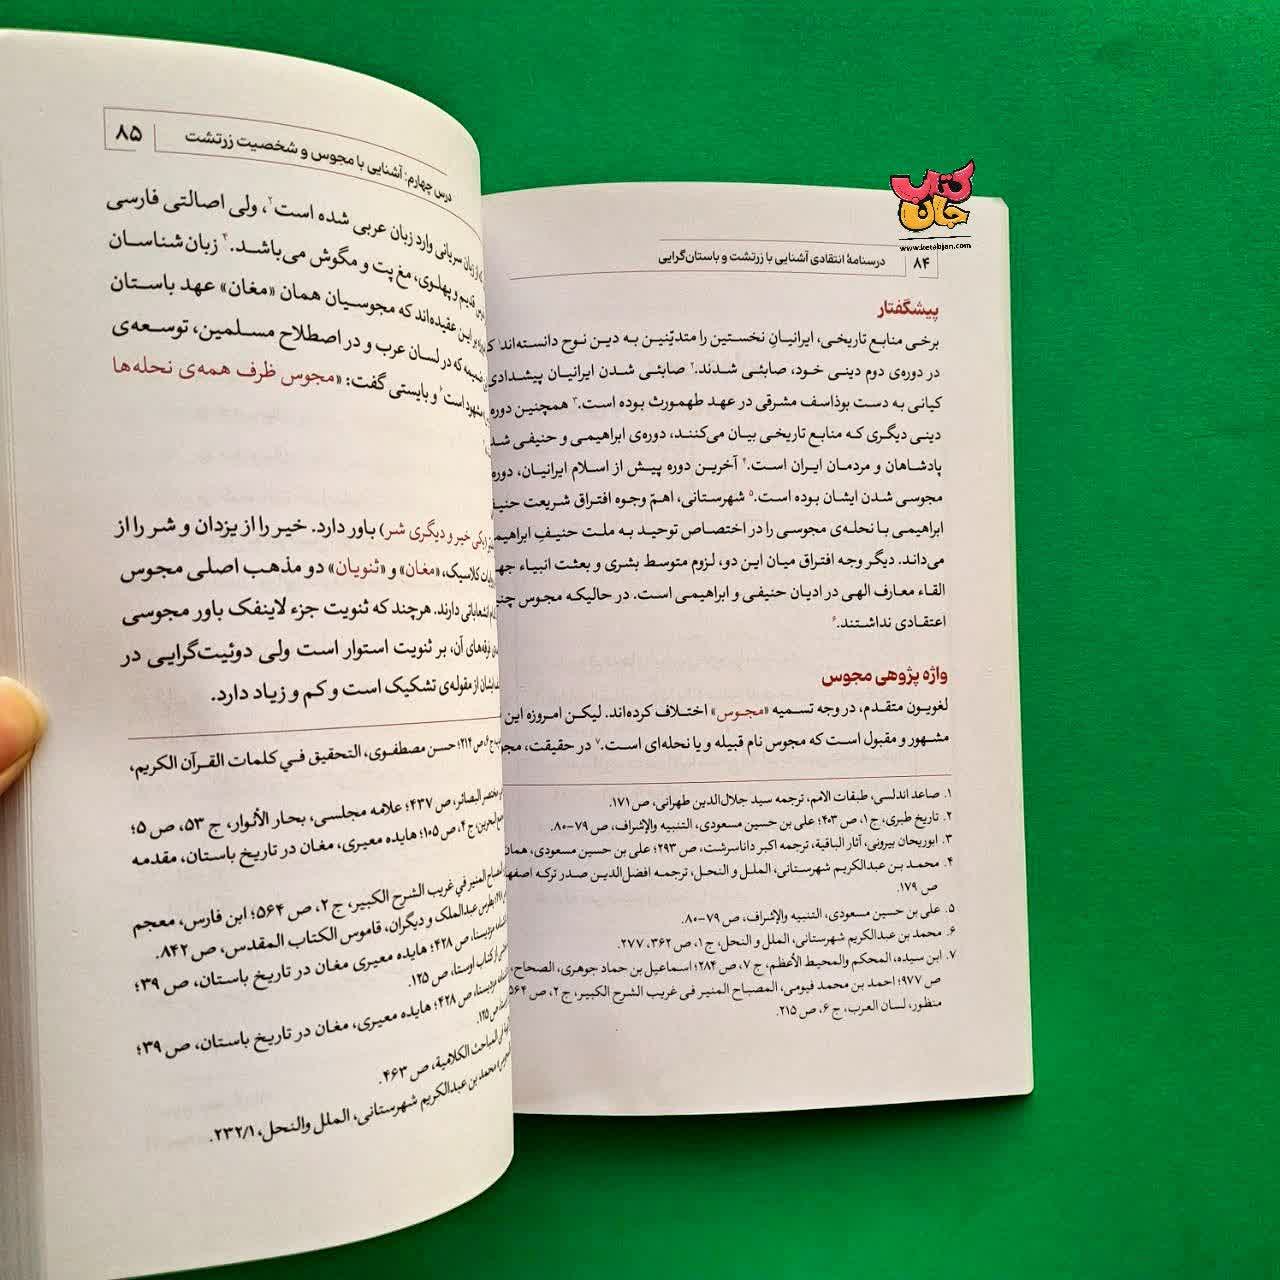 کتاب جان
www.ketabjan.com
۸۴ درسنامهٔ انتقادی آشنایی با زرتشت و باستان‌گرایی
پیشگفتار
برخی منابع تاریخی، ایرانیانِ نخستین را متدیّنین به دین نوح دانسته‌اند
در دوره‌ی دوم دینی خود، صابئی شدند.۲ صابئی شدن ایرانیان پیشدادی
کیانی به دست بوذاسف مشرقی در عهد طهمورث بوده است.۳ همچنین دوره
دینی دیگری که منابع تاریخی بیان می‌کنند، دوره‌ی ابراهیمی و حنیفی
پادشاهان و مردمان ایران است.۴ آخرین دوره پیش از اسلام ایرانیان، دوره
مجوسی شدن ایشان بوده است.۵ شهرستانی، اهمّ وجوه افتراق شریعت
ابراهیمی با نحله‌ی مجوسی را در اختصاص توحید به ملت حنیفِ
می‌داند. دیگر وجه افتراق میان این دو، لزوم متوسط بشری و بعثت انبیاء
القاء معارف الهی در ادیان حنیفی و ابراهیمی است. در حالیکه مجوس
اعتقادی نداشتند.۶
واژه پژوهی مجوس
لغویون متقدم، در وجه تسمیه «مجوس» اختلاف کرده‌اند. لیکن امروزه این
مشهور و مقبول است که مجوس نام قبیله و یا نحله‌ای است.۷ در حقیقت،
۱. صاعد اندلسی، طبقات الامم، ترجمه سید جلال‌الدین طهرانی، ص ۱۷۱.
۲. تاریخ طبری، ج ۱، ص ۴۰۳؛ علی بن حسین مسعودی، التنبیه والإشراف، ص ۷۹-۸۰.
۳. ابوریحان بیرونی، آثار الباقیة، ترجمه اکبر داناسرشت، ص ۲۹۳؛ علی بن حسین مسعودی، همان
۴. محمد بن عبدالکریم شهرستانی، الملل و النحل، ترجمه افضل‌الدین صدر ترکه
ص ۱۷۹.
۵. علی بن حسین مسعودی، التنبیه والإشراف، ص ۷۹-۸۰.
۶. محمد بن عبدالکریم شهرستانی، الملل و النحل، ج ۱، ص ۳۶۲، ۲۷۷.
۷. ابن سیده، المحکم والمحیط الأعظم، ج ۷، ص ۲۸۴؛ اسماعیل بن حماد جوهری، الصحاح،
ص ۹۷۷؛ احمد بن محمد فیومی، المصباح المنیر فی غریب الشرح الکبیر، ج ۲، ص ۵۶۴
منظور، لسان العرب، ج ۶، ص ۲۱۵.
درس چهارم: آشنایی با مجوس و شخصیت زرتشت ۸۵
از زبان سریانی وارد زبان عربی شده است۲، ولی اصالتی فارسی
قدیم و پهلوی، مغ پت و مگوش می‌باشد.۳ زبان‌شناسان
این عقیده‌اند که مجوسیان همان «مغان» عهد باستان
که در لسان عرب و در اصطلاح مسلمین، توسعه‌ی
است۴ و بایستی گفت: «مجوس ظرف همه‌ی نحله‌ها
(یکی خیر و دیگری شر) باور دارد. خیر را از یزدان و شر را از
کلاسیک، «مغان» و «ثنویان» دو مذهب اصلی مجوس
انشعاباتی دارند. هرچند که ثنویت جزء لاینفک باور مجوسی
فرقه‌های آن، بر ثنویت استوار است ولی دوئیت‌گرایی در
از مقوله‌ی تشکیک است و کم و زیاد دارد.
ج ۶، ص ۲۱۴؛ حسن مصطفوی، التحقیق في کلمات القرآن الکریم،
مختصر البصائر، ص ۴۳۷؛ علامه مجلسی، بحار الأنوار، ج ۵۳، ص ۵؛
ج ۴، ص ۱۰۵؛ هایده معیری، مغان در تاریخ باستان، مقدمه
المنیر في غریب الشرح الکبیر، ج ۲، ص ۵۶۴؛ ابن فارس، معجم
بطرس عبدالملک و دیگران، قاموس الکتاب المقدس، ص ۸۴۲.
ص ۴۲۸؛ هایده معیری مغان در تاریخ باستان، ص ۳۹؛
از کتاب اوستا، ص ۱۲۵.
ص ۴۲۸؛ هایده معیری، مغان در تاریخ باستان، ص ۳۹؛
ص ۱۲۵.
المباحث الکلامیة، ص ۴۶۳.
محمد بن عبدالکریم شهرستانی، الملل والنحل، ۲۳۲/۱.